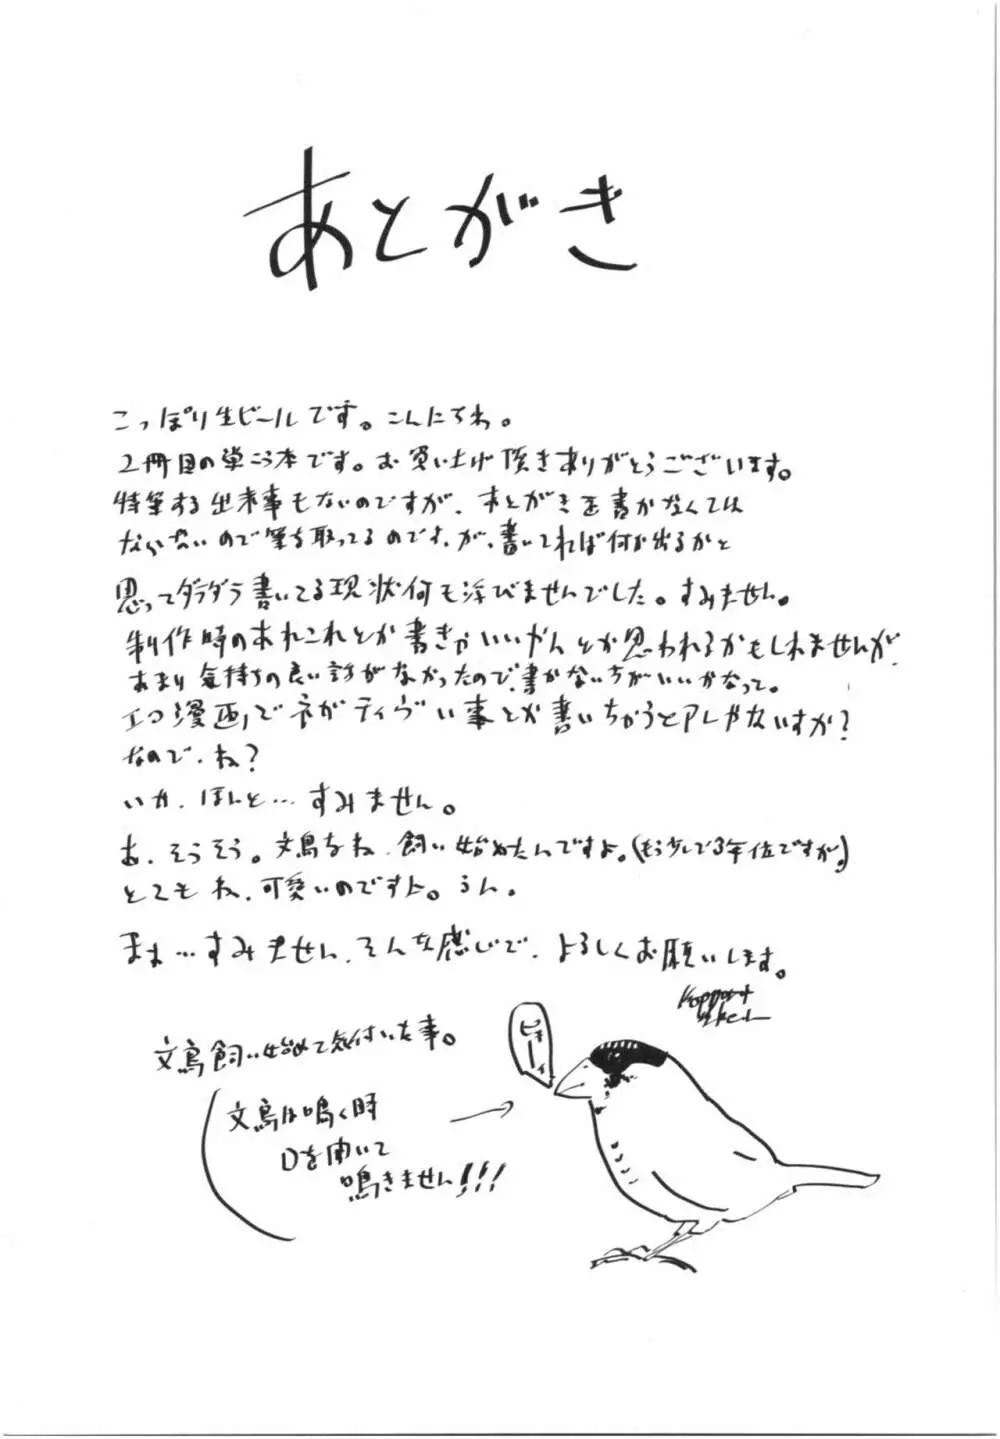 あとがき
こっぽり生ビールです。こんにちわ。
2冊目の単こう本です。お買い上げ頂きありがとうございます。
特筆する出来事もないのですが、あとがきを書かなくては
ならないので筆を取ってるのです、が、書いてれば何か出るかと
思ってダラダラ書いてる現状何も浮びませんでした。すみません。
制作時のあれこれとか書きゃいいやんとか思われるかもしれませんが、
あまり気持ちの良い話がなかったので、書かない方がいいかなって。
エロ漫画でネガティヴい事とか書いちゃうとアレじゃないすか?
なので、ね?
いか、ほんと…すみません。
あ、そうそう。文鳥をね、飼い始めたんですよ。(もう少しで3年位ですが。)
とてもね、可愛いのですよ。うん。
まぁ…すみません、そんな感じで、よろしくお願いします。
文鳥飼い始めて気付いた事。
ピキーィ
文鳥は鳴く時
口を開いて
鳴きません!!!